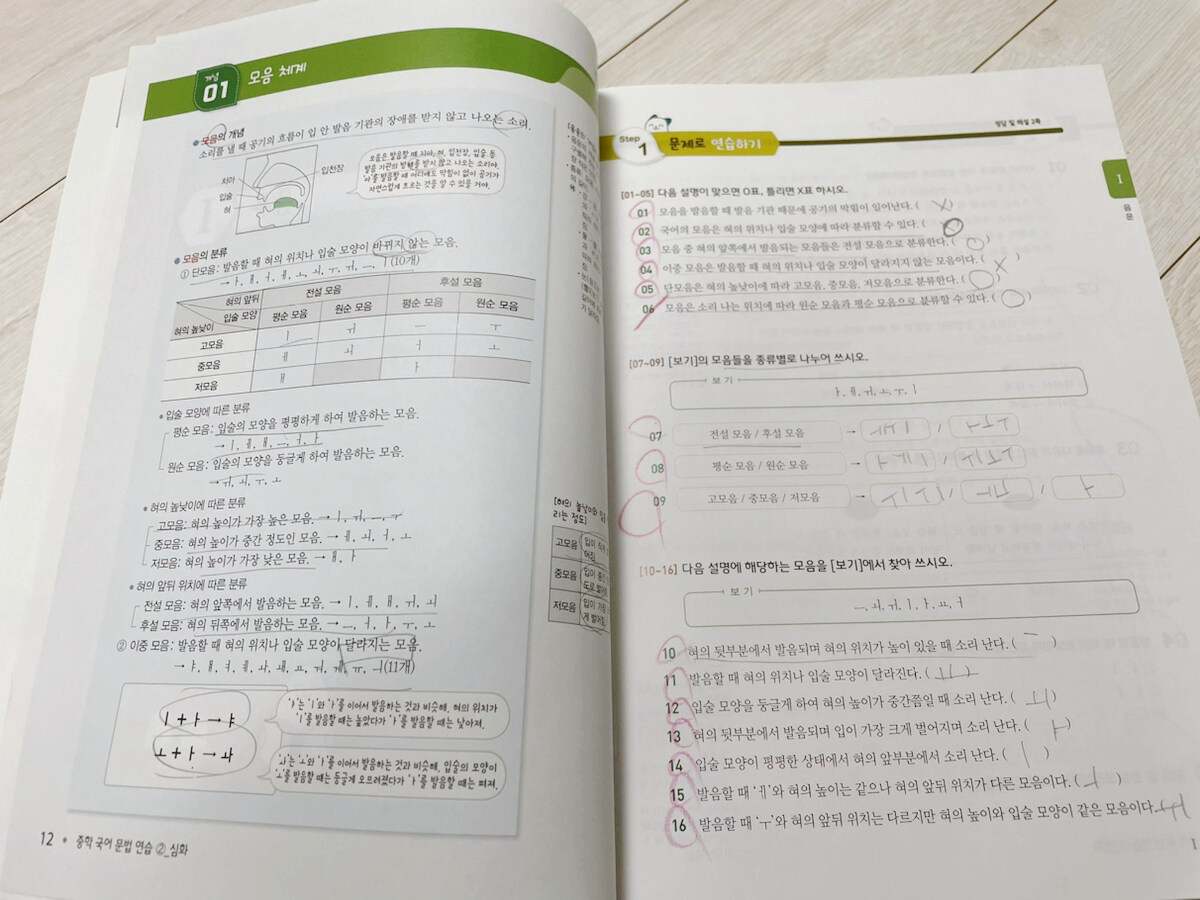 개념
01
모음 체계
모음의 개념
소리를 낼 때 공기의 흐름이 입 안 발음 기관의 장애를 받지 않고 나오는 소리.
치아
입술
혀
입천장
모음은 발음할 때 치아, 혀, 입천장, 입술 등
발음 기관의 방해를 받지 않고 나오는 소리야.
'ㅏ'를 발음할 때 어디에도 막힘이 없이 공기가
자연스럽게 흐르는 것을 알 수 있을 거야.
모음의 분류
① 단모음: 발음할 때 혀의 위치나 입술 모양이 바뀌지 않는 모음.
→ ㅏ, ㅐ, ㅓ, ㅔ, ㅗ, ㅚ, ㅜ, ㅟ, ㅡ, ㅣ(10개)
혀의 앞뒤 전설 모음 후설 모음
입술 모양
혀의 높낮이 평순 모음 원순 모음 평순 모음 원순 모음
고모음 ㅣ ㅟ ㅡ ㅜ
중모음 ㅔ ㅚ ㅓ ㅗ
저모음 ㅐ ㅏ
입술 모양에 따른 분류
평순 모음: 입술의 모양을 평평하게 하여 발음하는 모음.
→ ㅣ, ㅔ, ㅐ, ㅡ, ㅓ, ㅏ
원순 모음: 입술의 모양을 둥글게 하여 발음하는 모음.
→ ㅟ, ㅚ, ㅜ, ㅗ
혀의 높낮이에 따른 분류
고모음: 혀의 높이가 가장 높은 모음. → ㅣ, ㅟ, ㅡ, ㅜ
중모음: 혀의 높이가 중간 정도인 모음. → ㅔ, ㅚ, ㅓ, ㅗ
저모음: 혀의 높이가 가장 낮은 모음. → ㅐ, ㅏ
혀의 앞뒤 위치에 따른 분류
전설 모음: 혀의 앞쪽에서 발음하는 모음. → ㅣ, ㅔ, ㅐ, ㅟ, ㅚ
후설 모음: 혀의 뒤쪽에서 발음하는 모음. → ㅡ, ㅓ, ㅏ, ㅜ, ㅗ
② 이중 모음: 발음할 때 혀의 위치나 입술 모양이 달라지는 모음.
→ ㅑ, ㅒ, ㅕ, ㅖ, ㅘ, ㅙ, ㅛ, ㅝ, ㅞ, ㅠ, ㅢ(11개)
ㅣ + ㅏ → ㅑ
ㅗ + ㅏ → ㅘ
'ㅑ'는 'ㅣ'와 'ㅏ'를 이어서 발음하는 것과 비슷해. 혀의 위치가
'ㅣ'를 발음할 때는 높았다가 'ㅏ'를 발음할 때는 낮아져.
'ㅘ'는 'ㅗ'와 'ㅏ'를 이어서 발음하는 것과 비슷해. 입술의 모양이
'ㅗ'를 발음할 때는 둥글게 오므려졌다가 'ㅏ'를 발음할 때는 펴져.
12 중학 국어 문법 연습 ②_심화
고모음
중모음
저모음
Step 1 문제로 연습하기
정답 및 해설 2쪽
Ⅰ
음운
[01~05] 다음 설명이 맞으면 O표, 틀리면 X표 하시오.
01 모음을 발음할 때 발음 기관 때문에 공기의 막힘이 일어난다. ( X )
02 국어의 모음은 혀의 위치나 입술 모양에 따라 분류할 수 있다. ( O )
03 모음 중 혀의 앞쪽에서 발음되는 모음들은 전설 모음으로 분류한다. ( O )
04 이중 모음은 발음할 때 혀의 위치나 입술 모양이 달라지지 않는 모음이다. ( X )
05 단모음은 혀의 높낮이에 따라 고모음, 중모음, 저모음으로 분류한다. ( O )
06 모음은 소리 나는 위치에 따라 원순 모음과 평순 모음으로 분류할 수 있다. ( O )
[07~09] [보기]의 모음들을 종류별로 나누어 쓰시오.
보기
ㅏ, ㅔ, ㅟ, ㅗ, ㅜ, ㅣ
07 전설 모음 / 후설 모음 → ㅔㅣㅟ , ㅏㅗㅜ
08 평순 모음 / 원순 모음 → ㅏㅔㅣ , ㅟㅗㅜ
09 고모음 / 중모음 / 저모음 → ㅟㅜㅣ , ㅔㅗ , ㅏ
[10~16] 다음 설명에 해당하는 모음을 [보기]에서 찾아 쓰시오.
보기
ㅡ, ㅚ, ㅟ, ㅣ, ㅏ, ㅛ, ㅓ
10 혀의 뒷부분에서 발음되며 혀의 위치가 높이 있을 때 소리 난다. ( ㅡ )
11 발음할 때 혀의 위치나 입술 모양이 달라진다. ( ㅛ )
12 입술 모양을 둥글게 하여 혀의 높이가 중간쯤일 때 소리 난다. ( ㅚ )
13 혀의 뒷부분에서 발음되며 입이 가장 크게 벌어지며 소리 난다. ( ㅏ )
14 입술 모양이 평평한 상태에서 혀의 앞부분에서 소리 난다. ( ㅣ )
15 발음할 때 'ㅔ'와 혀의 높이는 같으나 혀의 앞뒤 위치가 다른 모음이다. ( ㅓ )
16 발음할 때 'ㅜ'와 혀의 앞뒤 위치는 다르지만 혀의 높이와 입술 모양이 같은 모음이다. ㅟ